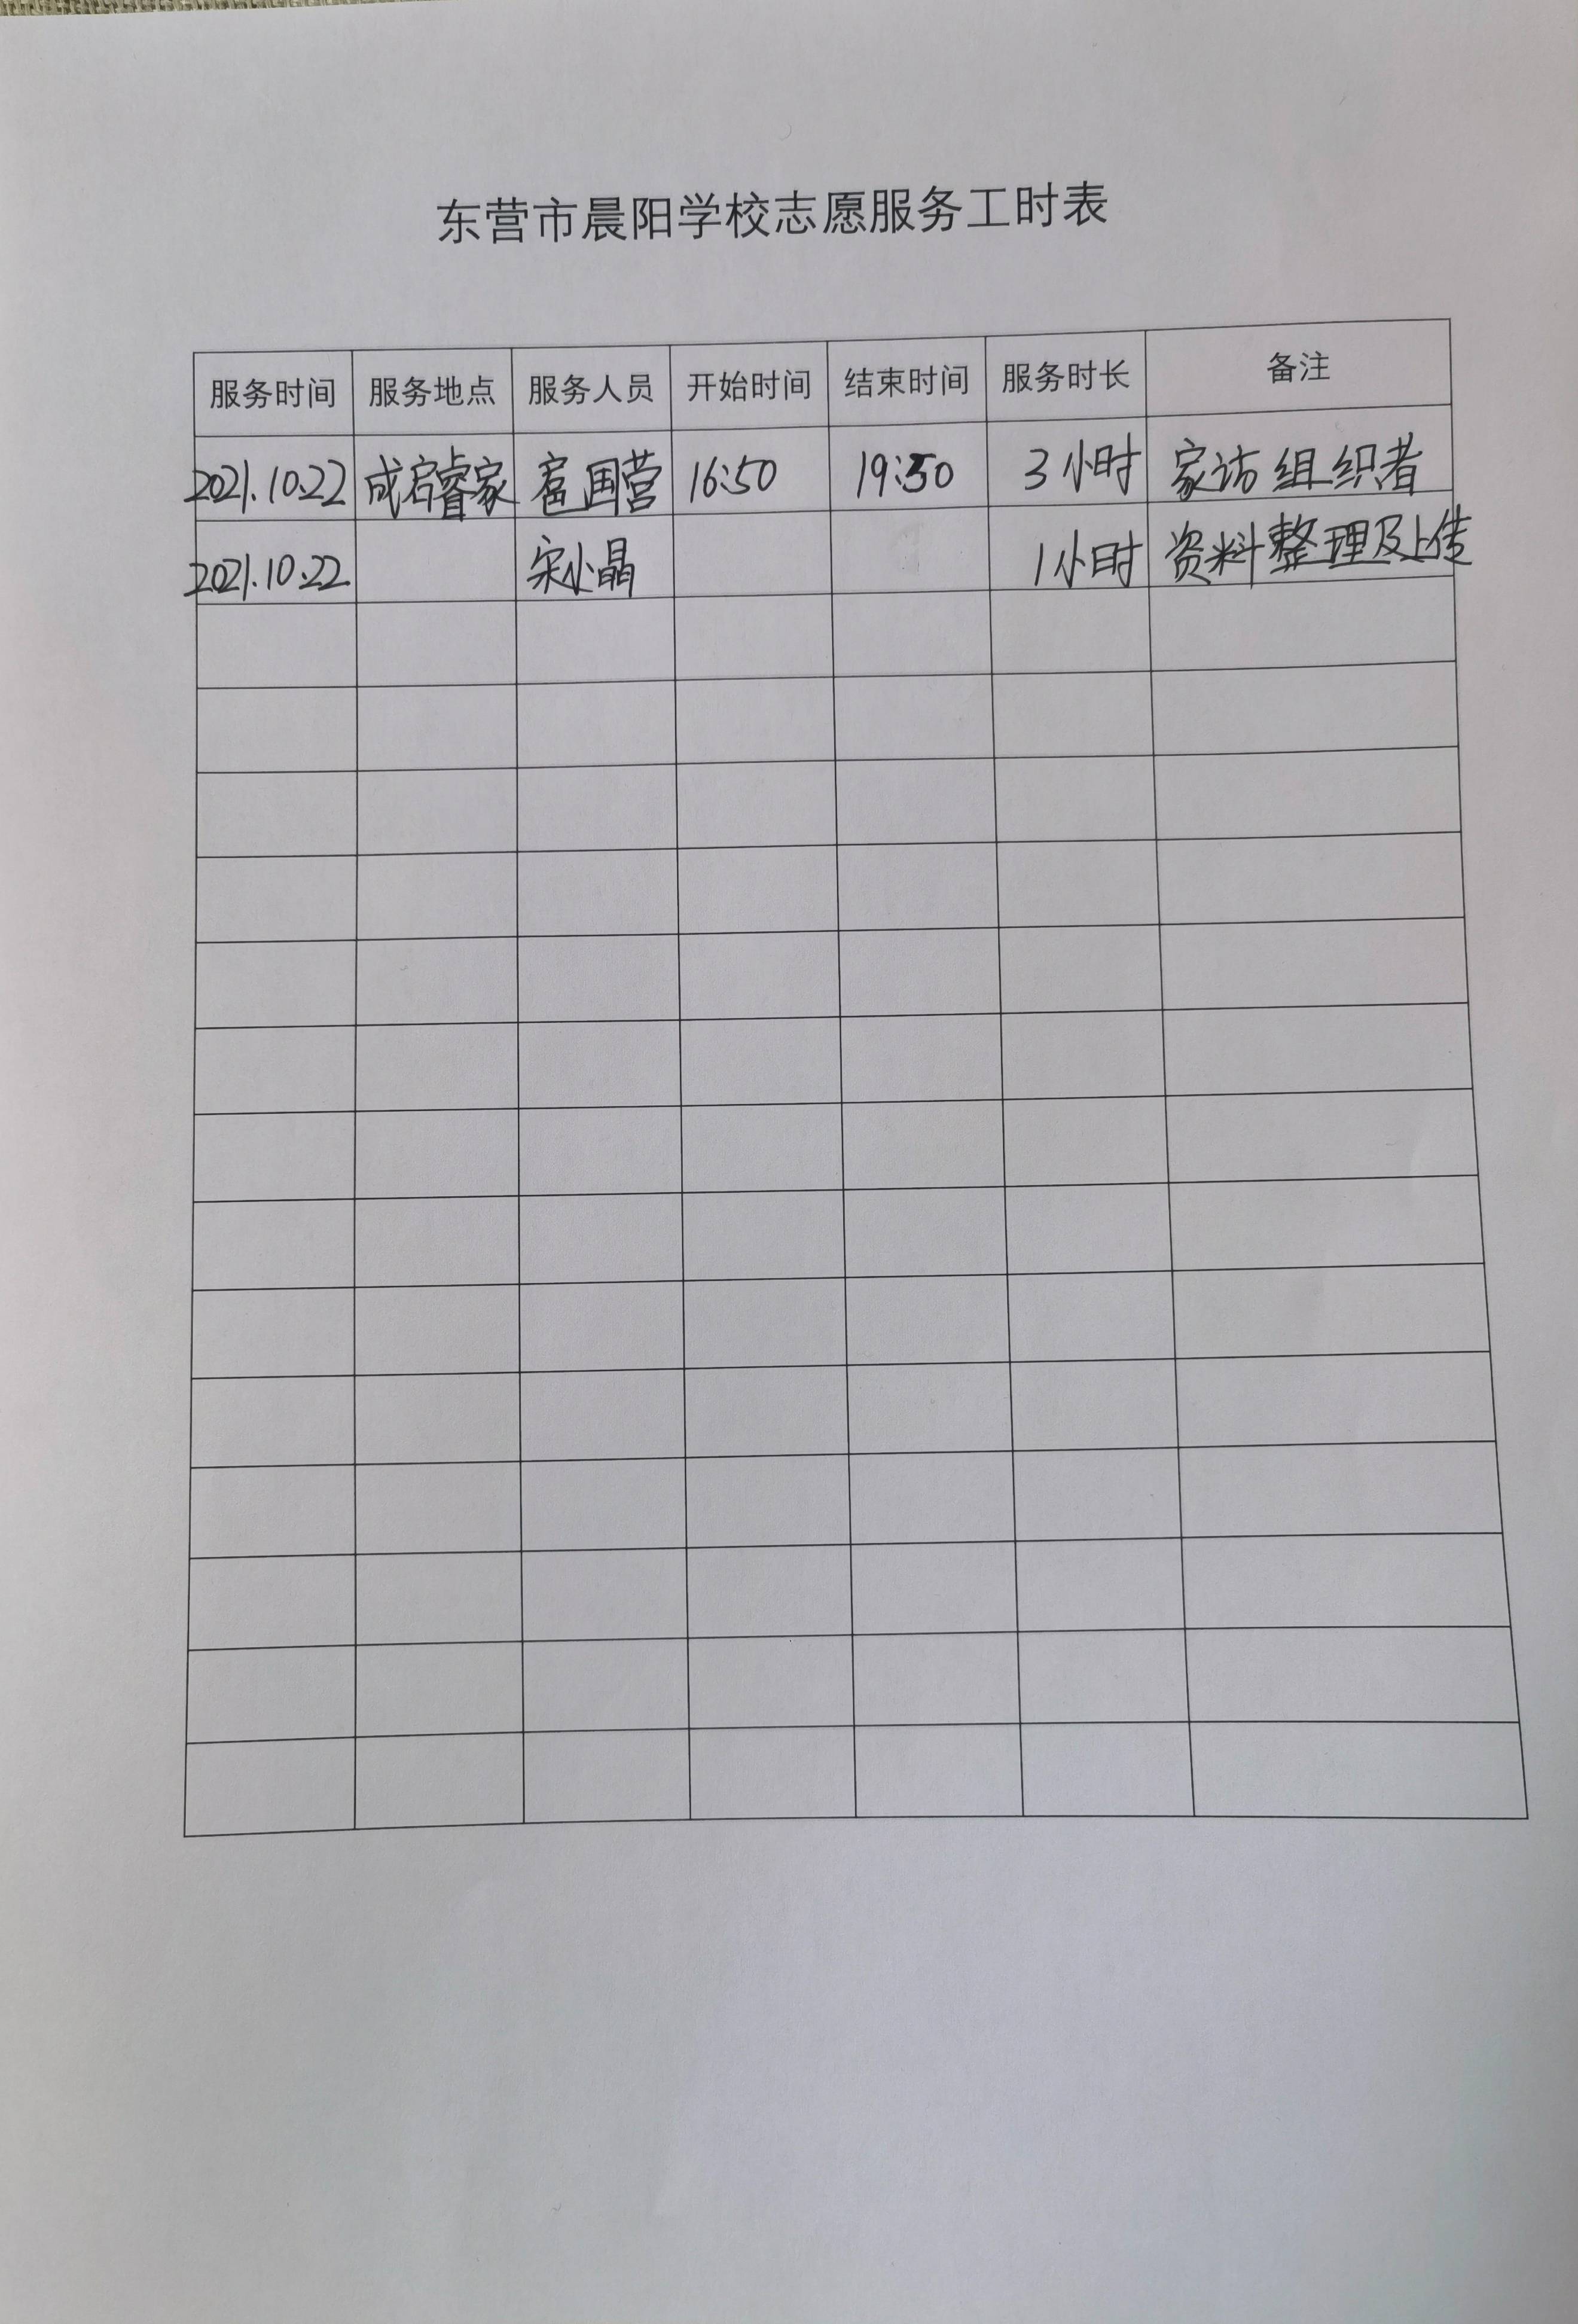 东营市晨阳学校志愿服务工时表
服务时间 服务地点 服务人员 开始时间 结束时间 服务时长 备注
2021.10.22 成启睿家 国营 16:50 19:50 3小时 家访组织者
2021.10.22 宋小晶 1小时 资料整理及上传